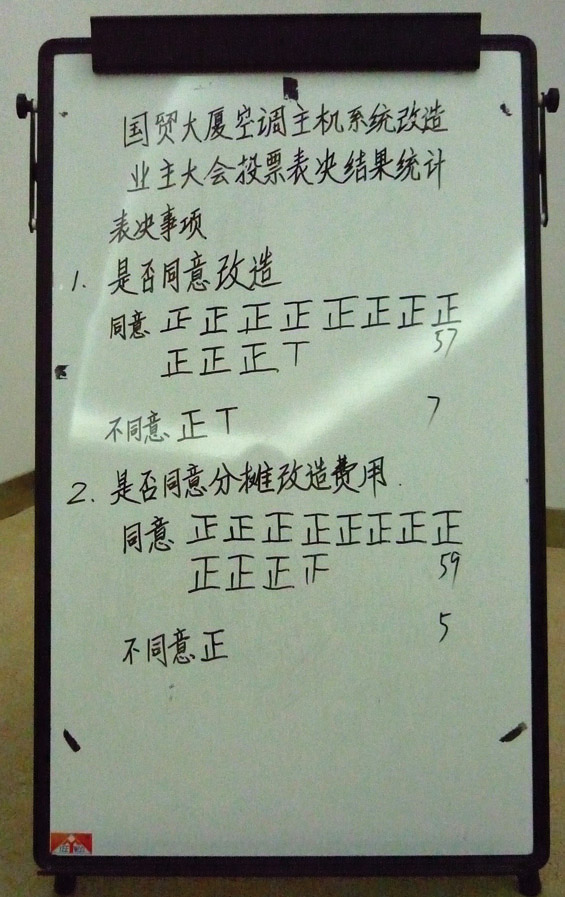 国贸大厦空调主机系统改造
业主大会投票表决结果统计
表决事项
1. 是否同意改造
同意 正正正正正正正正
正正正丅 57
不同意 正丅 7
2. 是否同意分摊改造费用.
同意 正正正正正正正正
正正正𝍵 59
不同意 正 5